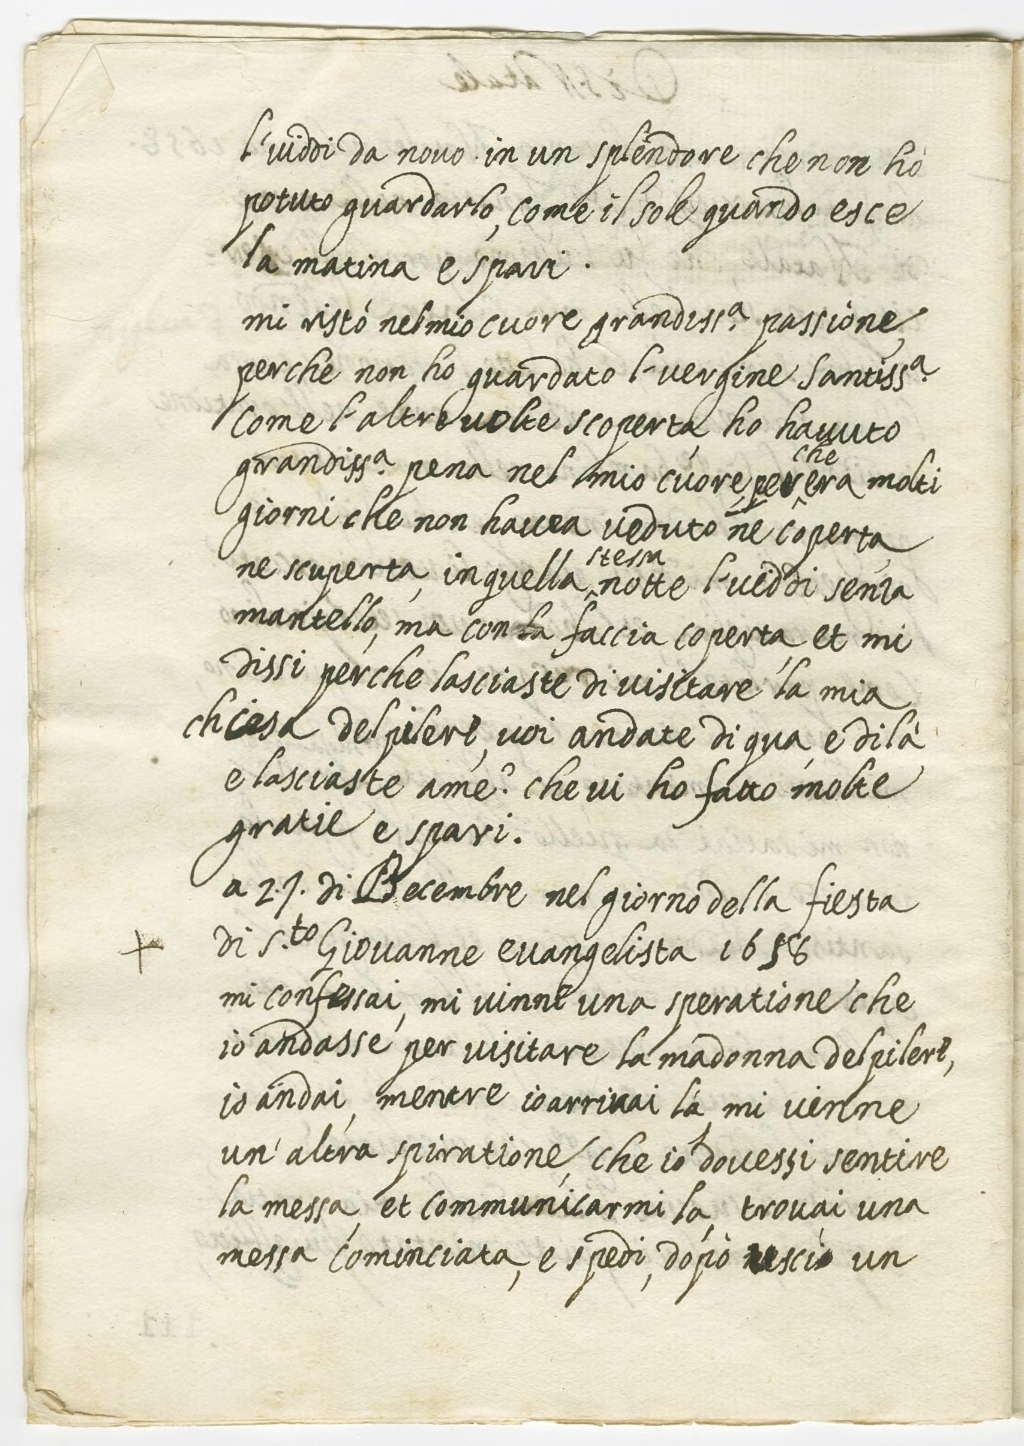 l'viddi da novo in un splendore che non ho
potuto guardarlo, come il sole quando esce
la matina e spari.
mi ristò nel mio cuore grandiss.a passione,
perche non ho guardato l'vergine Santiss.a
come l'altre volte scoperta ho havuto
grandiss.a pena nel mio cuore per che era molti
giorni che non havea veduto ne coperta
ne scuperta, in quella stessa notte l'veddi senza
mantello, ma con la faccia coperta, et mi
dissi perche lasciaste di visitare la mia
chiesa del pileri, voi andate di qua e di là
e lasciaste a me? che vi ho fatto molte
gratie e spari.
a 27. di Decembre nel giorno della fiesta
di S.to Giovanne evangelista 1658
mi confessai, mi vinne una speratione che
io andasse per visitare la madonna del pileri,
io andai, mentre io arrivai là mi venne
un' altra spiratione, che io dovessi sentire
la messa, et communicarmi la, trovai una
messa cominciata, e spedi, dopo uscio un